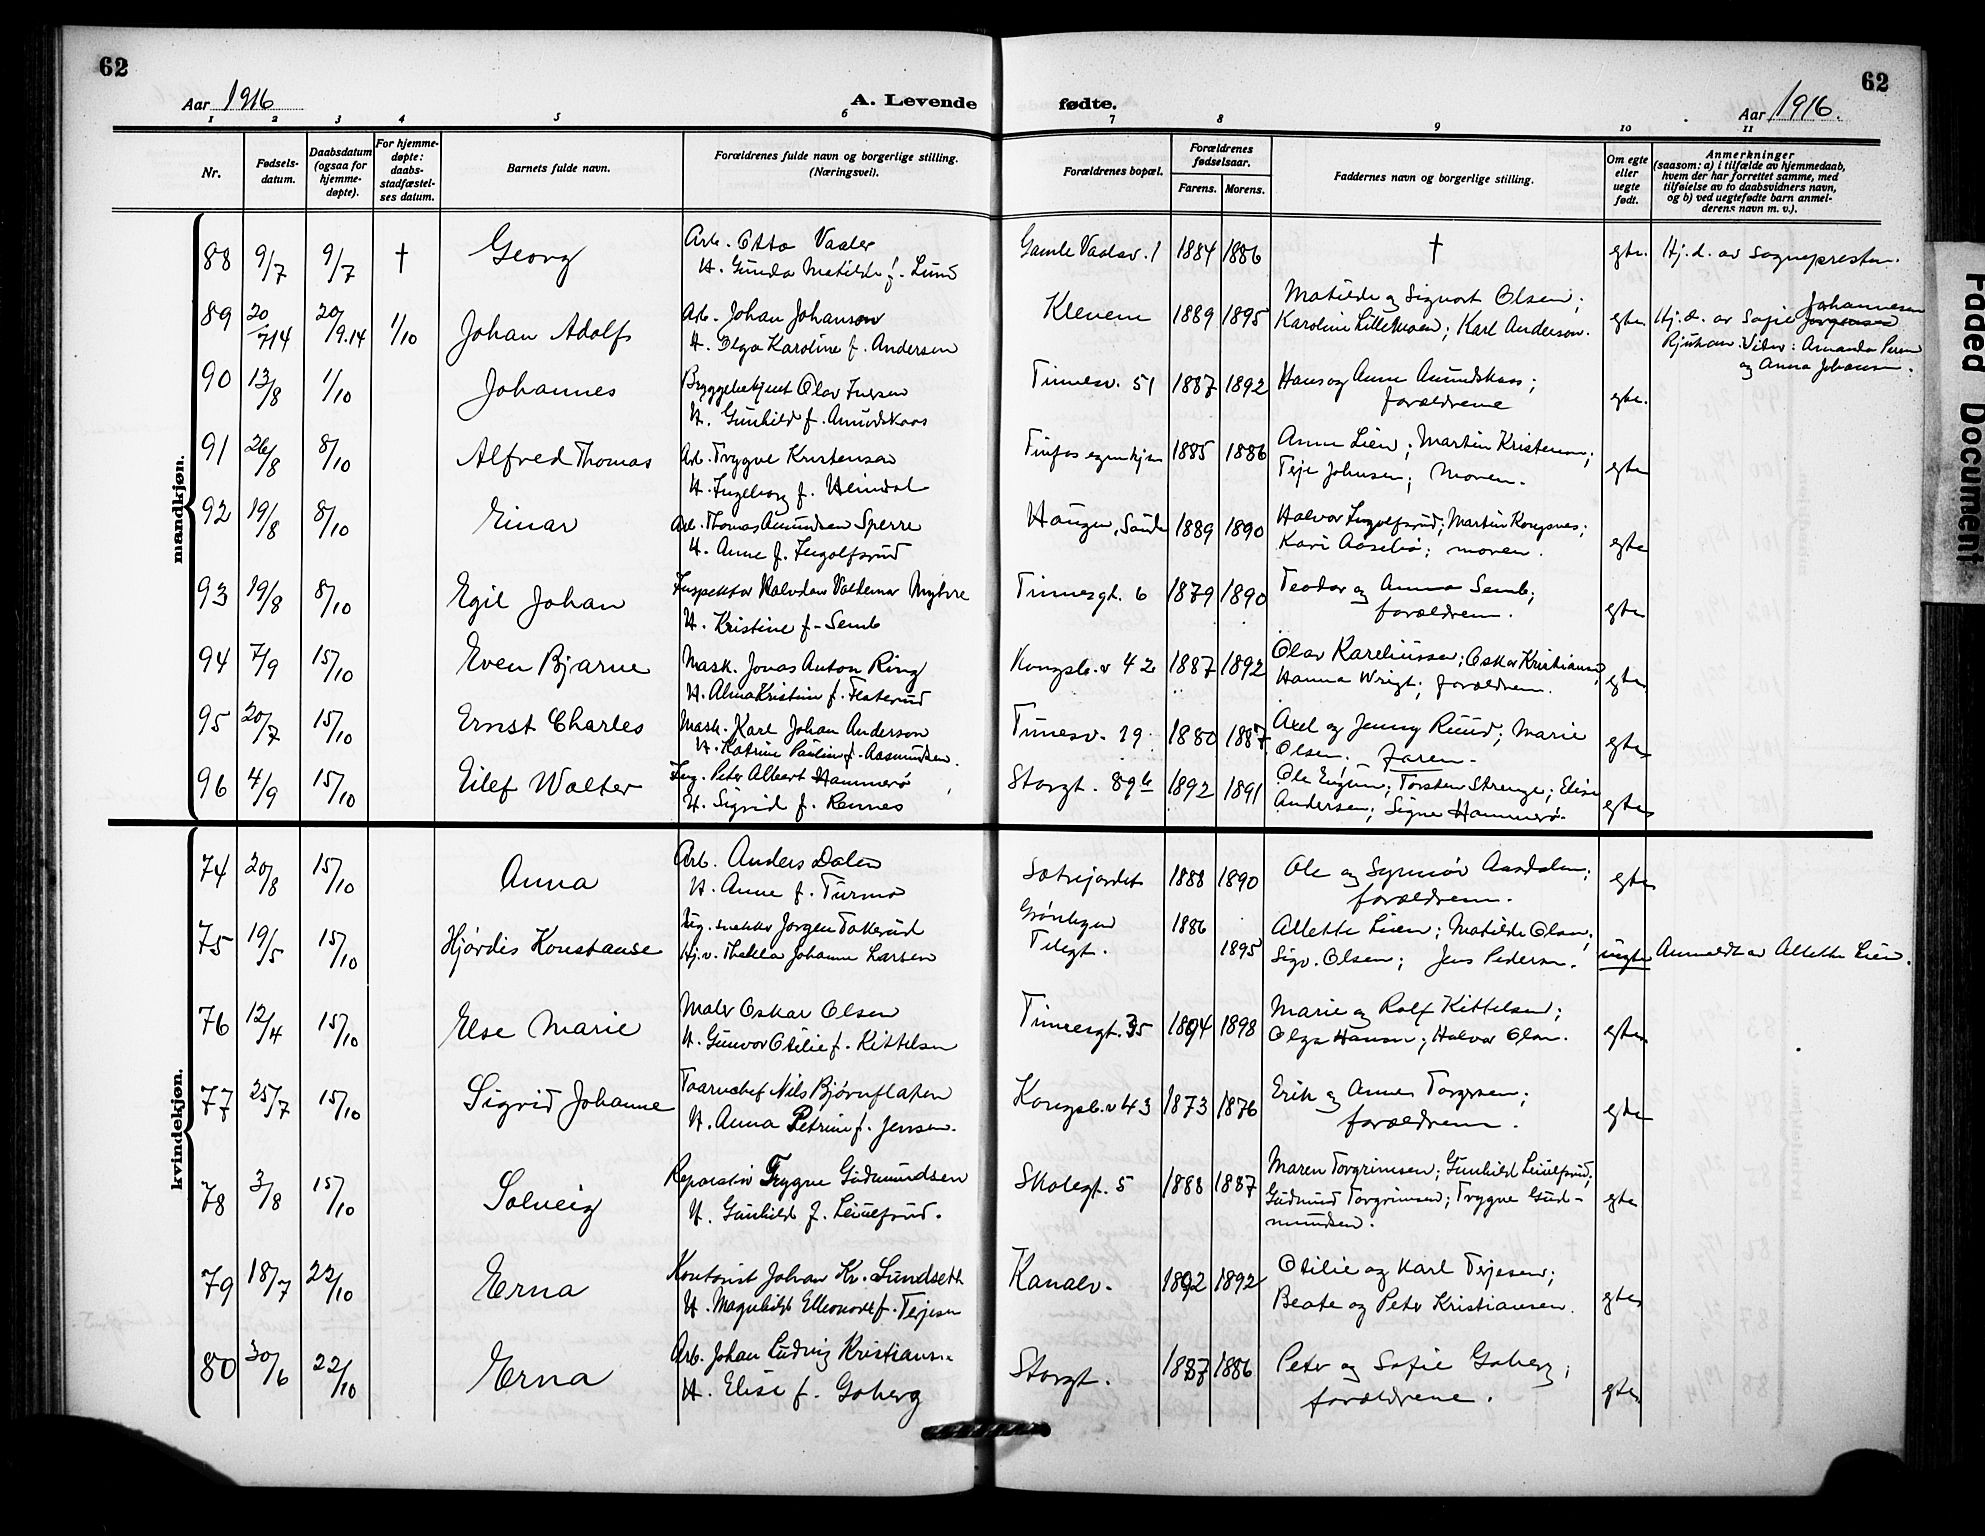 62
62
Aar 1916
A. Levende fødte.
Aar 1916.
1 2 3 4 5 6 7 8 9 10 11
Nr.
Fødsels-
datum.
Daabsdatum
(ogsaa for
hjemme-
døpte).
For hjemme-
døpte:
daabs-
stadfæstel-
ses datum.
Barnets fulde navn.
Forældrenes fulde navn og borgerlige stilling.
(Næringsvei).
Forældrenes bopæl.
Forældrenes
fødselsaar.
Farens. Morens.
Faddernes navn og borgerlige stilling.
Om egte
eller
uegte
født.
Anmerkninger
(saasom: a) i tilfælde av hjemmedaab,
hvem der har forrettet samme, med
tilføielse av to daabsvidners navn,
og b) ved uegtefødte barn anmel-
derens navn m. v.).
mandkjøn.
88 9/7 9/7 † Georg Arb. Otto Vaaler Gamle Vaalsv. 1 1884 1886 † egte. Hj. d. av sognepresten.
H. Gunda Matilde f. Lund
89 20/7 14 20/9.14 1/10 Johan Adolf Arb. Johan Johanson Klevene 1889 1895 Matilde og Sigvart Olsen; egte. Hj. d. av Sofie Johannesen
H. Olga Karoline f. Andersen Karoline Lillemoen; Karl Anderson. Rjukan. Vidner: Amanda
og Anna Johansen.
90 13/8 1/10 Johannes Byggebetjent Olav Iversen Tinnesv. 51 1887 1892 Hans og Anne Amundskaas; egte.
H. Gunhild f. Amundskaas forældrene
91 26/8 8/10 Alfred Thomas Arb. Trygve Kristensen Tinfos 1885 1886 Anne Lien; Martin Kristensen; egte
H. Ingeborg f. Heindal Johnsen; moren.
92 19/8 8/10 Einar Arb. Thomas Amundsen Sperre Haugen, Saude 1889 1890 Halvor Ingolfsrud; Martin Kongsnes; egte
H. Anne f. Ingolfsrud Kari Aasebø; moren.
93 19/8 8/10 Egil Johan Inspektør Halvdan Valdemar Myhre Tinnesgt. 6 1879 1890 Teodor og Anna Semb; egte
H. Kristine f. Semb forældrene.
94 7/9 15/10 Even Bjarne Mask. Jonas Anton Ring Kongsb.v 42 1887 1892 Olav Kareliussen; Oskar Kristiansen; egte
H. Alma Kristine f. Flaterud Hanna Wrigt; forældrene.
95 20/7 15/10 Ernst Charles Mask. Karl Johan Anderson Tinnesv. 19 1880 1887 Axel og Jenny Ruud; Marie egte
H. Katrine Pauline f. Aasmundsen. Olsen; faren.
96 4/9 15/10 Eilef Walter Ing. Peter Albert Hammerø Storgt. 89b 1892 1891 Ole; Torsten Strenge; Elise egte
H. Sigrid f. Rennes Andersen; Signe Hammerø.
kvindekjøn.
74 20/8 15/10 Anna Arb. Anders Dalen Sætrejordet 1888 1890 Ole og Synnøv Aasdalen; egte
H. Anne f. Turmo forældrene.
75 19/5 15/10 Hjørdis Konstanse Ug. snekker Jørgen Takerud Grønbyen 1886 Allette Lien; Matilde Olsen; uegte Anmeldt av Allette Lien.
Hj.v. Thekla Johanne Larsen Telegt. 1895 Sigv. Olsen; Jens Pedersen.
76 12/4 15/10 Else Marie Maler Oskar Olsen Tinnesgt. 35 1894 1898 Marie og Rolf Kittelsen; egte
H. Gunvor Otilie f. Kittelsen Olga Hansen; Halvor Olsen.
77 25/7 15/10 Sigrid Johanne Taarnchef Nils Bjørnflaten Kongsb.v 43 1873 1876 Erik og Anne Torgersen; egte
H. Anna Petrine f. Jensen. forældrene.
78 3/8 15/10 Solveig Reparatør Trygve Gudmundsen Skolegt. 5 1888 1887 Maren Torgrimsen; Gunhild Leiulfsrud; egte
H. Gunhild f. Leiulfsrud. Gudmund Torgrimsen; Trygve Gud-
mundsen.
79 18/7 22/10 Erna Kontorist Johan Kr. Lundsett Kanalv. 1892 1892 Otilie og Karl Terjesen; egte
H. Magnhild Elleonore f. Terjesen Beate og Peter Kristiansen.
80 30/6 22/10 Erna Arb. Johan Ludvig Kristiansen Storgt. 1887 1886 Peter og Sofie Goberg; egte
H. Elise f. Goberg forældrene.
Foded Document